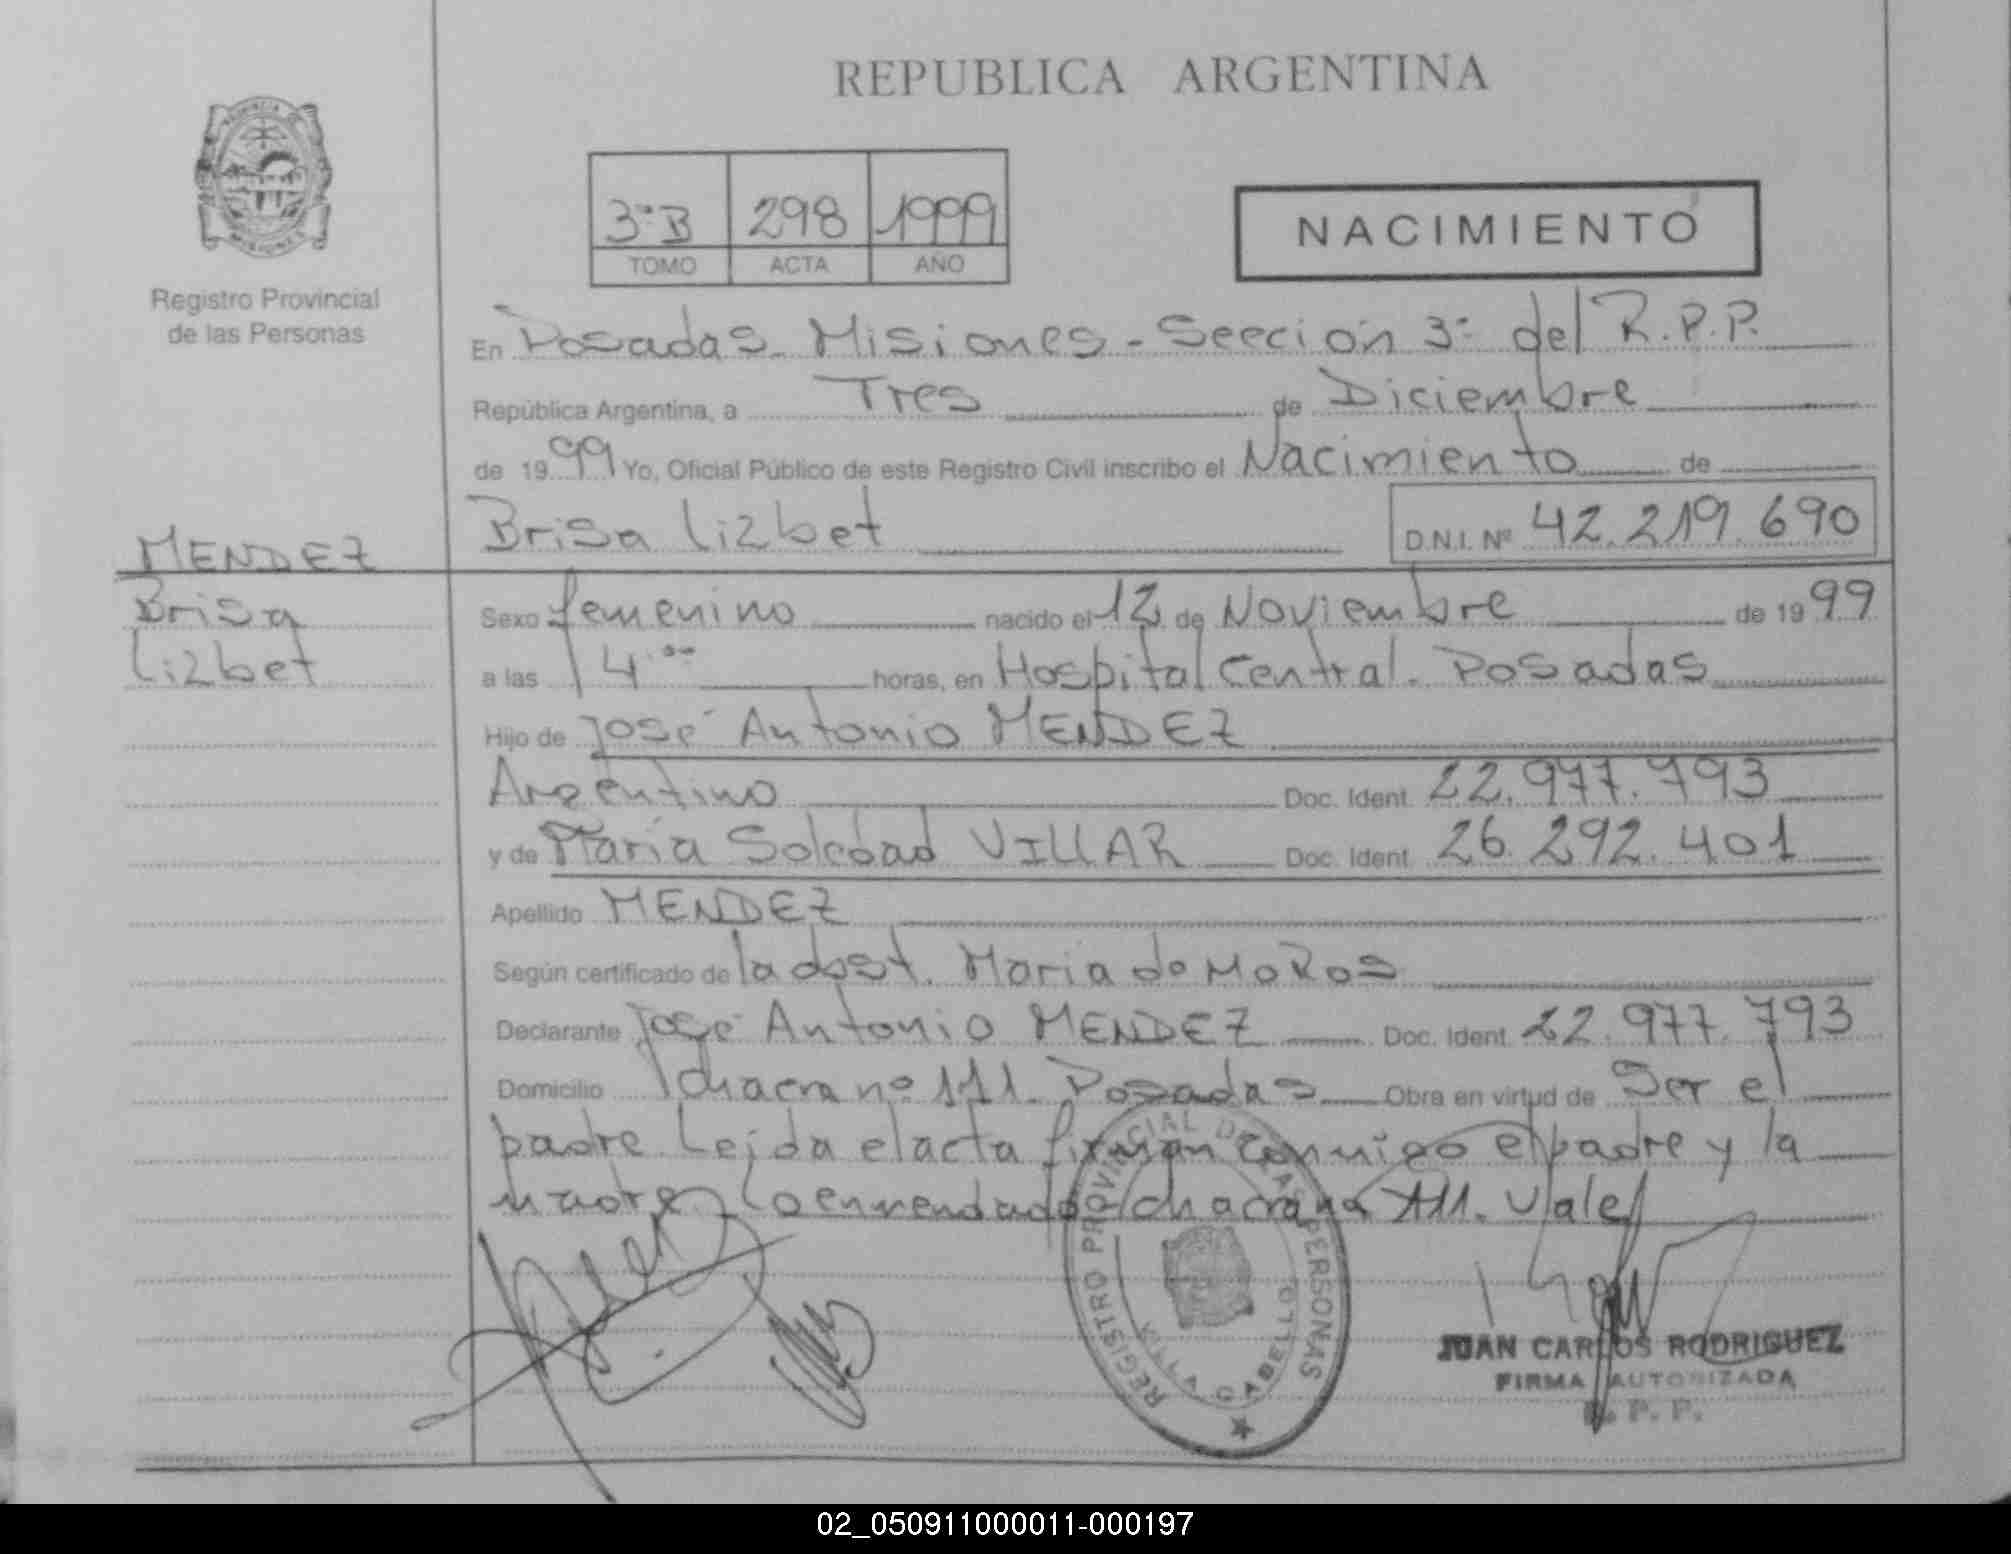 REPUBLICA ARGENTINA
3ºB 298 1999
TOMO ACTA AÑO
NACIMIENTO
Registro Provincial
de las Personas
En Posadas Misiones - Sección 3º del R.P.P.
República Argentina, a Tres de Diciembre
de 1999 Yo, Oficial Público de este Registro Civil inscribo el Nacimiento de
Brisa Lizbet D.N.I. Nº 42.219.690
MENDEZ
Brisa
Lizbet
Sexo femenino nacido el 12 de Noviembre de 1999
a las 14 ºº horas, en Hospital Central. Posadas
Hijo de José Antonio MENDEZ
Argentino Doc. Ident. 22.977.793
y de María Soledad VILLAR Doc. Ident. 26.292.401
Apellido MENDEZ
Según certificado de la obst. Maria de
Declarante José Antonio MENDEZ Doc. Ident. 22.977.793
Domicilio chacra nº 111. Posadas Obra en virtud de Ser el
padre Leida el acta firman conmigo el padre y la
madre Lo enmendado chacra 111. Vale
REGISTRO PROVINCIAL DE LAS PERSONAS
VILLA CABELLO
JUAN CARLOS RODRIGUEZ
FIRMA AUTORIZADA
R. P. P.
02_050911000011-000197